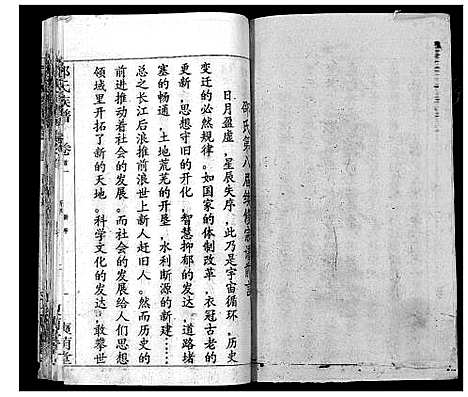 邵氏第八届续修宗谱前言
日月盈虚，星辰失序，此乃是宇宙循环，历史
变迁的必然规律。如国家的体制改革，衣冠古老的
更新，思想守旧的开化，智慧抑郁的发达，道路堵
塞的畅通，土地荒芜的开垦，水利断源的新建……
总之长江后浪推前浪世上新人赶旧人。然而历史的
前进推动着社会的发展。而社会的发展给人们思想
领域里开拓了新的天地。科学文化的发达，敢攀世
邵氏族谱 卷首一